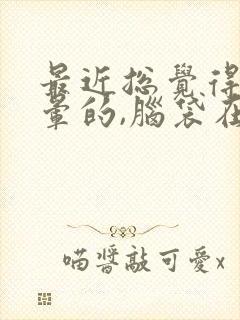 最近总覺得
暈的,腦袋在
喵醬敲可愛x